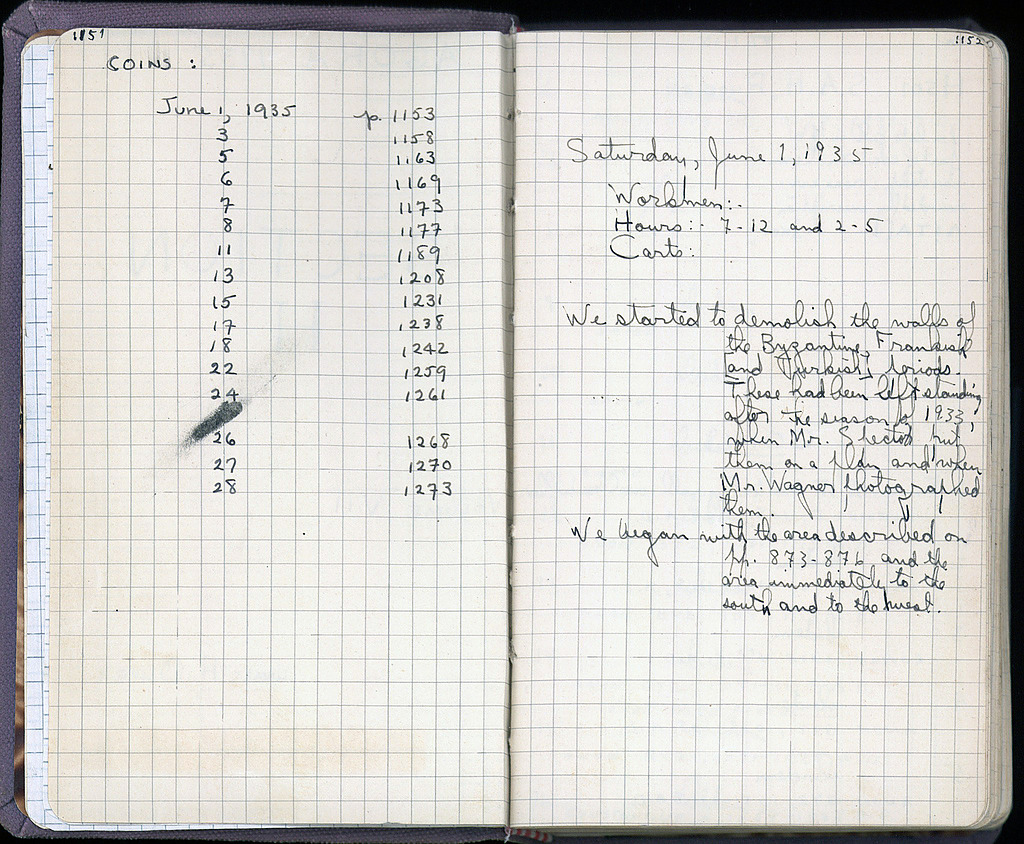 1151
COINS :
June 1, 1935 p. 1153
3 1158
5 1163
6 1169
7 1173
8 1177
11 1189
13 1208
15 1231
17 1238
18 1242
22 1259
24 1261
26 1268
27 1270
28 1273
1152
Saturday, June 1, 1935
Workmen:-
Hours:- 7-12 and 2-5
Carts:
We started to demolish the walls of
the Byzantine, Frankish
[and Turkish] periods.
These had been left standing
after the season of 1933,
when Mr. put
them on a plan and when
Mr. Wagner photographed
them.
We began with the area described on
pp. 873-876 and the
area immediately to the
south and to the west.